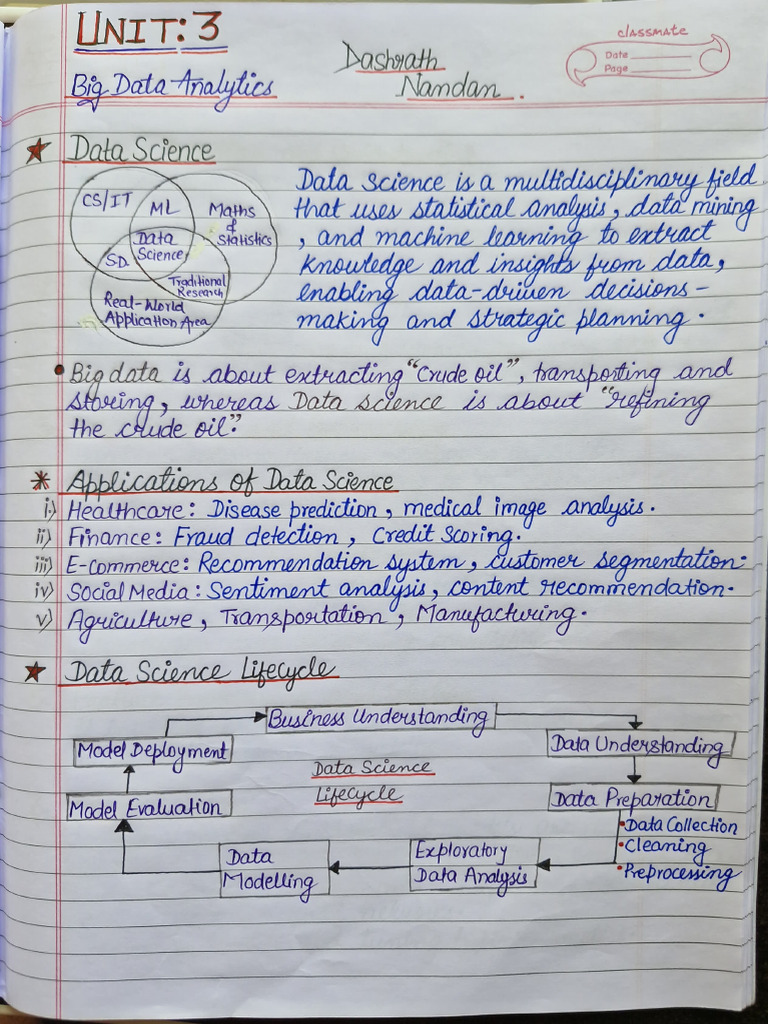 UNIT: 3
Dashrath
Nandan.
classmate
Date
Page
Big Data Analytics
Data Science
CS/IT
ML
Maths
&
Statistics
Data
Science
SD
Traditional
Research
Real-World
Application Area
Data Science is a multidisciplinary field
that uses statistical analysis, data mining
, and machine learning to extract
knowledge and insights from data,
enabling data-driven decisions-
making and strategic planning.
• Big data is about extracting "crude oil", transporting and
storing, whereas Data science is about "refining
the crude oil".
* Applications of Data Science
i.) Healthcare: Disease prediction, medical image analysis.
ii) Finance: Fraud detection, Credit Scoring.
iii) E-commerce: Recommendation system, customer segmentation.
iv) Social Media: Sentiment analysis, content recommendation.
v) Agriculture, Transportation, Manufacturing.
Data Science Lifecycle
Business Understanding
Model Deployment
Data Understanding
Data Science
Lifecycle
Model Evaluation
Data Preparation
• Data Collection
• Cleaning
• Preprocessing
Data
Modelling
Exploratory
Data Analysis